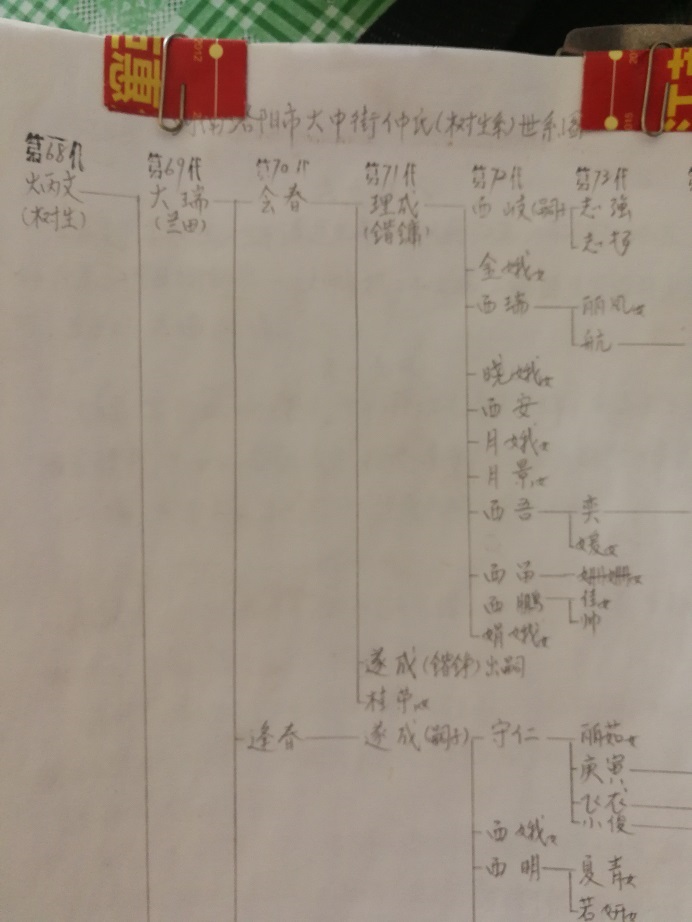 惠
2012
洛阳市大中街仲氏(树生系)世系图
第68代 第69代 第70代 第71代 第72代 第73代
大瑞 会春 理成 西岐(嗣子) 志强
(树生) (兰田) (锴镛)
金娥女
西瑞 丽风女
航
晓娥女
西安
月娥女
月景女
西吾 奕
媛女
西苗 姗姗女
西鹏 佳女
帅
娟娥女
遂成(锴钟)出嗣
桂荣女
逢春 遂成(嗣子) 守仁 丽茹女
庚寅
飞农
小俊
西娥女
西明 夏青女
若妍女